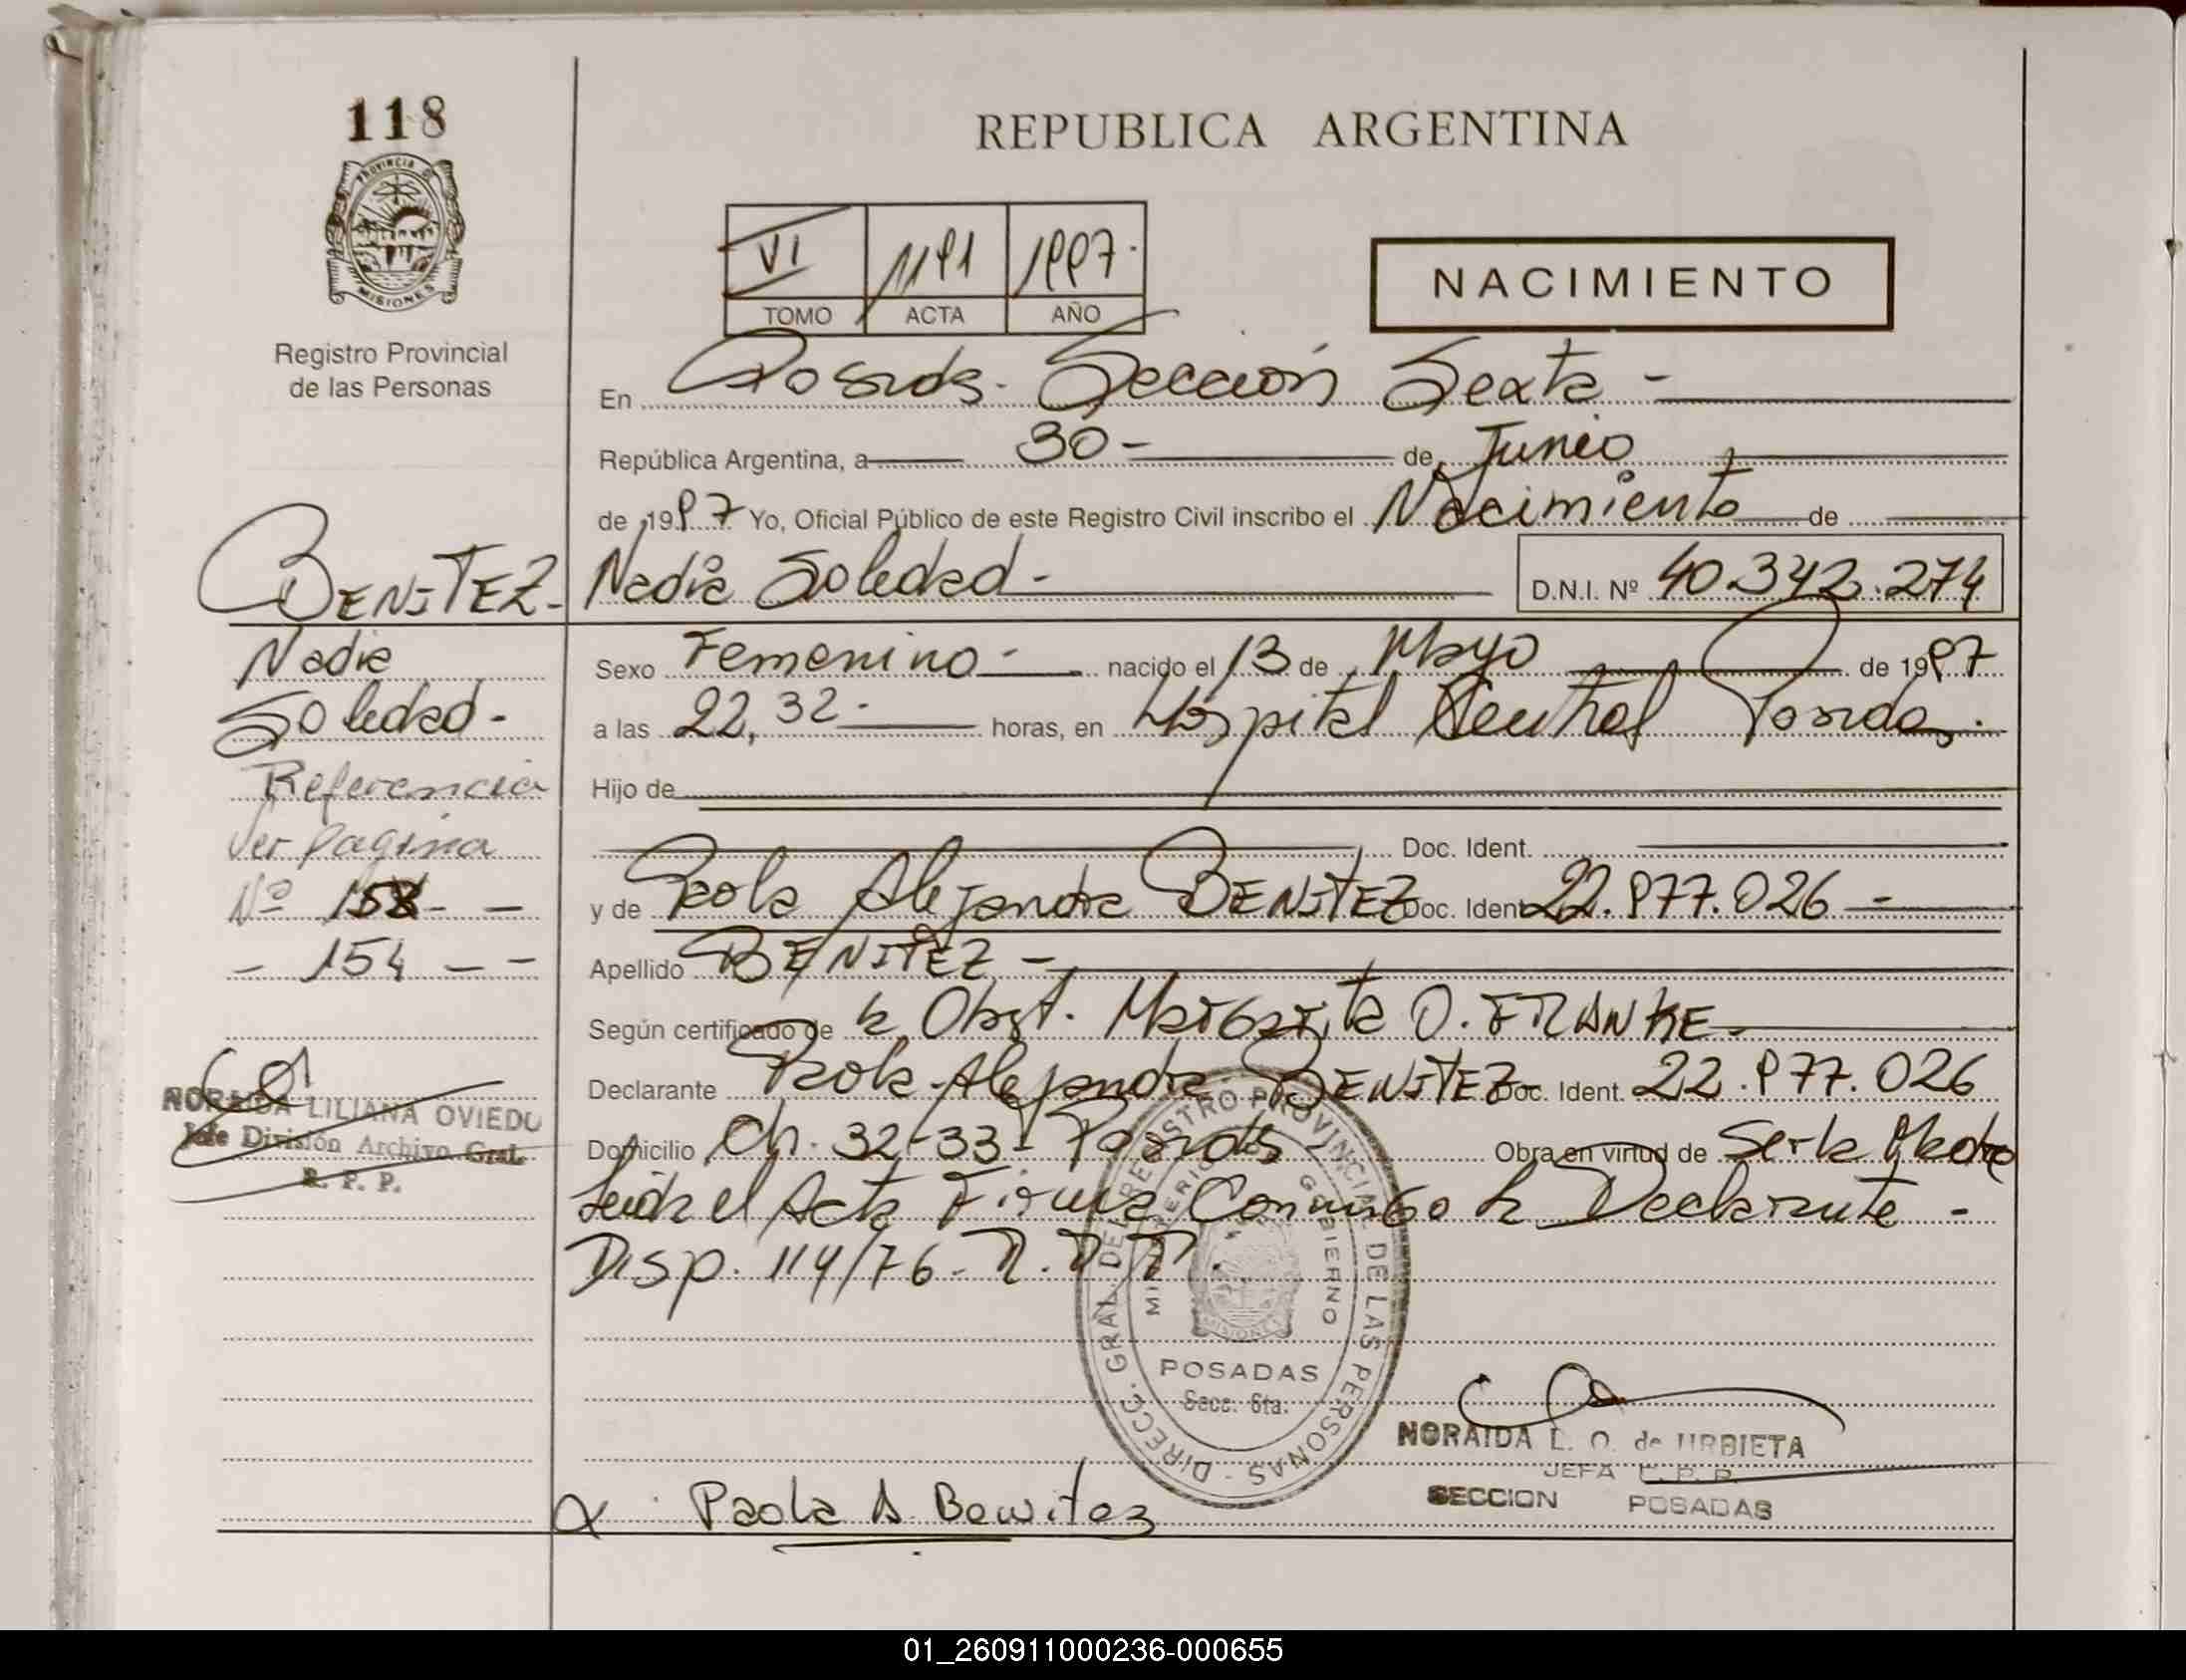 118
REPUBLICA ARGENTINA
PROVINCIA DE MISIONES
VI 1191 1997.
TOMO ACTA AÑO
NACIMIENTO
Registro Provincial
de las Personas
En Posadas. Sección Sexta -
República Argentina, a 30 - de Junio
de 1997 Yo, Oficial Público de este Registro Civil inscribo el Nacimiento de
BENITEZ- Nadia Soledad - D.N.I. Nº 40.342.274
Nadia
Soledad -
Sexo Femenino - nacido el 13 de Mayo de 1997
a las 22,32 - horas, en Hospital Central Posadas.
Referencia
Ver pagina
Nº 158 - -
- 154 - -
Hijo de
Doc. Ident.
y de Paola Alejandra BENITEZ Doc. Ident 22.977.026 -
Apellido BENITEZ -
Según certificado de la Obst. Margarita O. FRANKE -
Declarante Paola Alejandra BENITEZ Doc. Ident. 22.977.026
Domicilio Ch. 32-33- Posadas Obra en virtud de Ser la Madre
Leida el Acta Firma Conmigo la Declarante -
Disp. 114/76 - R.P.P.
NORAIDA LILIANA OVIEDO
Jefe División Archivo Gral.
R. P. P.
DIRECC. GRAL. DEL REGISTRO PROVINCIAL DE LAS PERSONAS -
MINISTERIO DE GOBIERNO
MISIONES
POSADAS
Secc. 6ta.
NORAIDA L. O. de URBIETA
JEFA R. P. P.
SECCION POSADAS
x Paola A Benitez
01_260911000236-000655